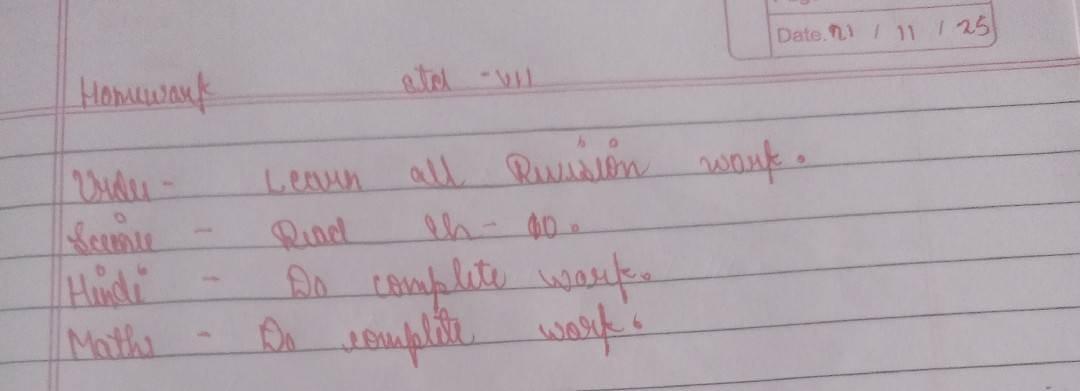 Date. 21 / 11 / 25
Homework std - VII
Urdu - Learn all Revision work.
Science - Read Ch - 10.
Hindi - Do complete work.
Maths - Do complete work.